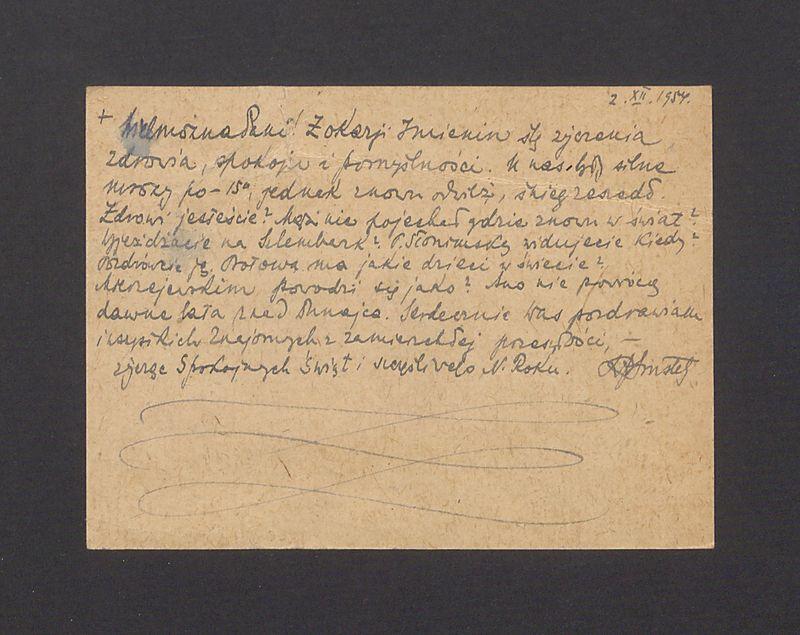 2. XII. 1954.
+ Wielmożna Pani! Z okazji Imienin ślę życzenia
zdrowia, spokoju i pomyślności. U nas były silne
mrozy po -15°, jednak znowu odwilż, śnieg zeszedł.
Zdrowi jesteście? Mąż nie pojechał gdzie znowu w świat?
Wyjeżdżacie na Szlembark? P. Słonimską widujecie kiedy?
Pozdrówcie ją. ma jakie dzieci w świecie?
powodzi się jako? Ano nie powrócą
dawne lata znad Dunajca. Serdecznie Was pozdrawiam
i wszystkich Znajomych z zamierzchłej przeszłości, —
życząc Spokojnych Świąt i szczęśliwego N. Roku.